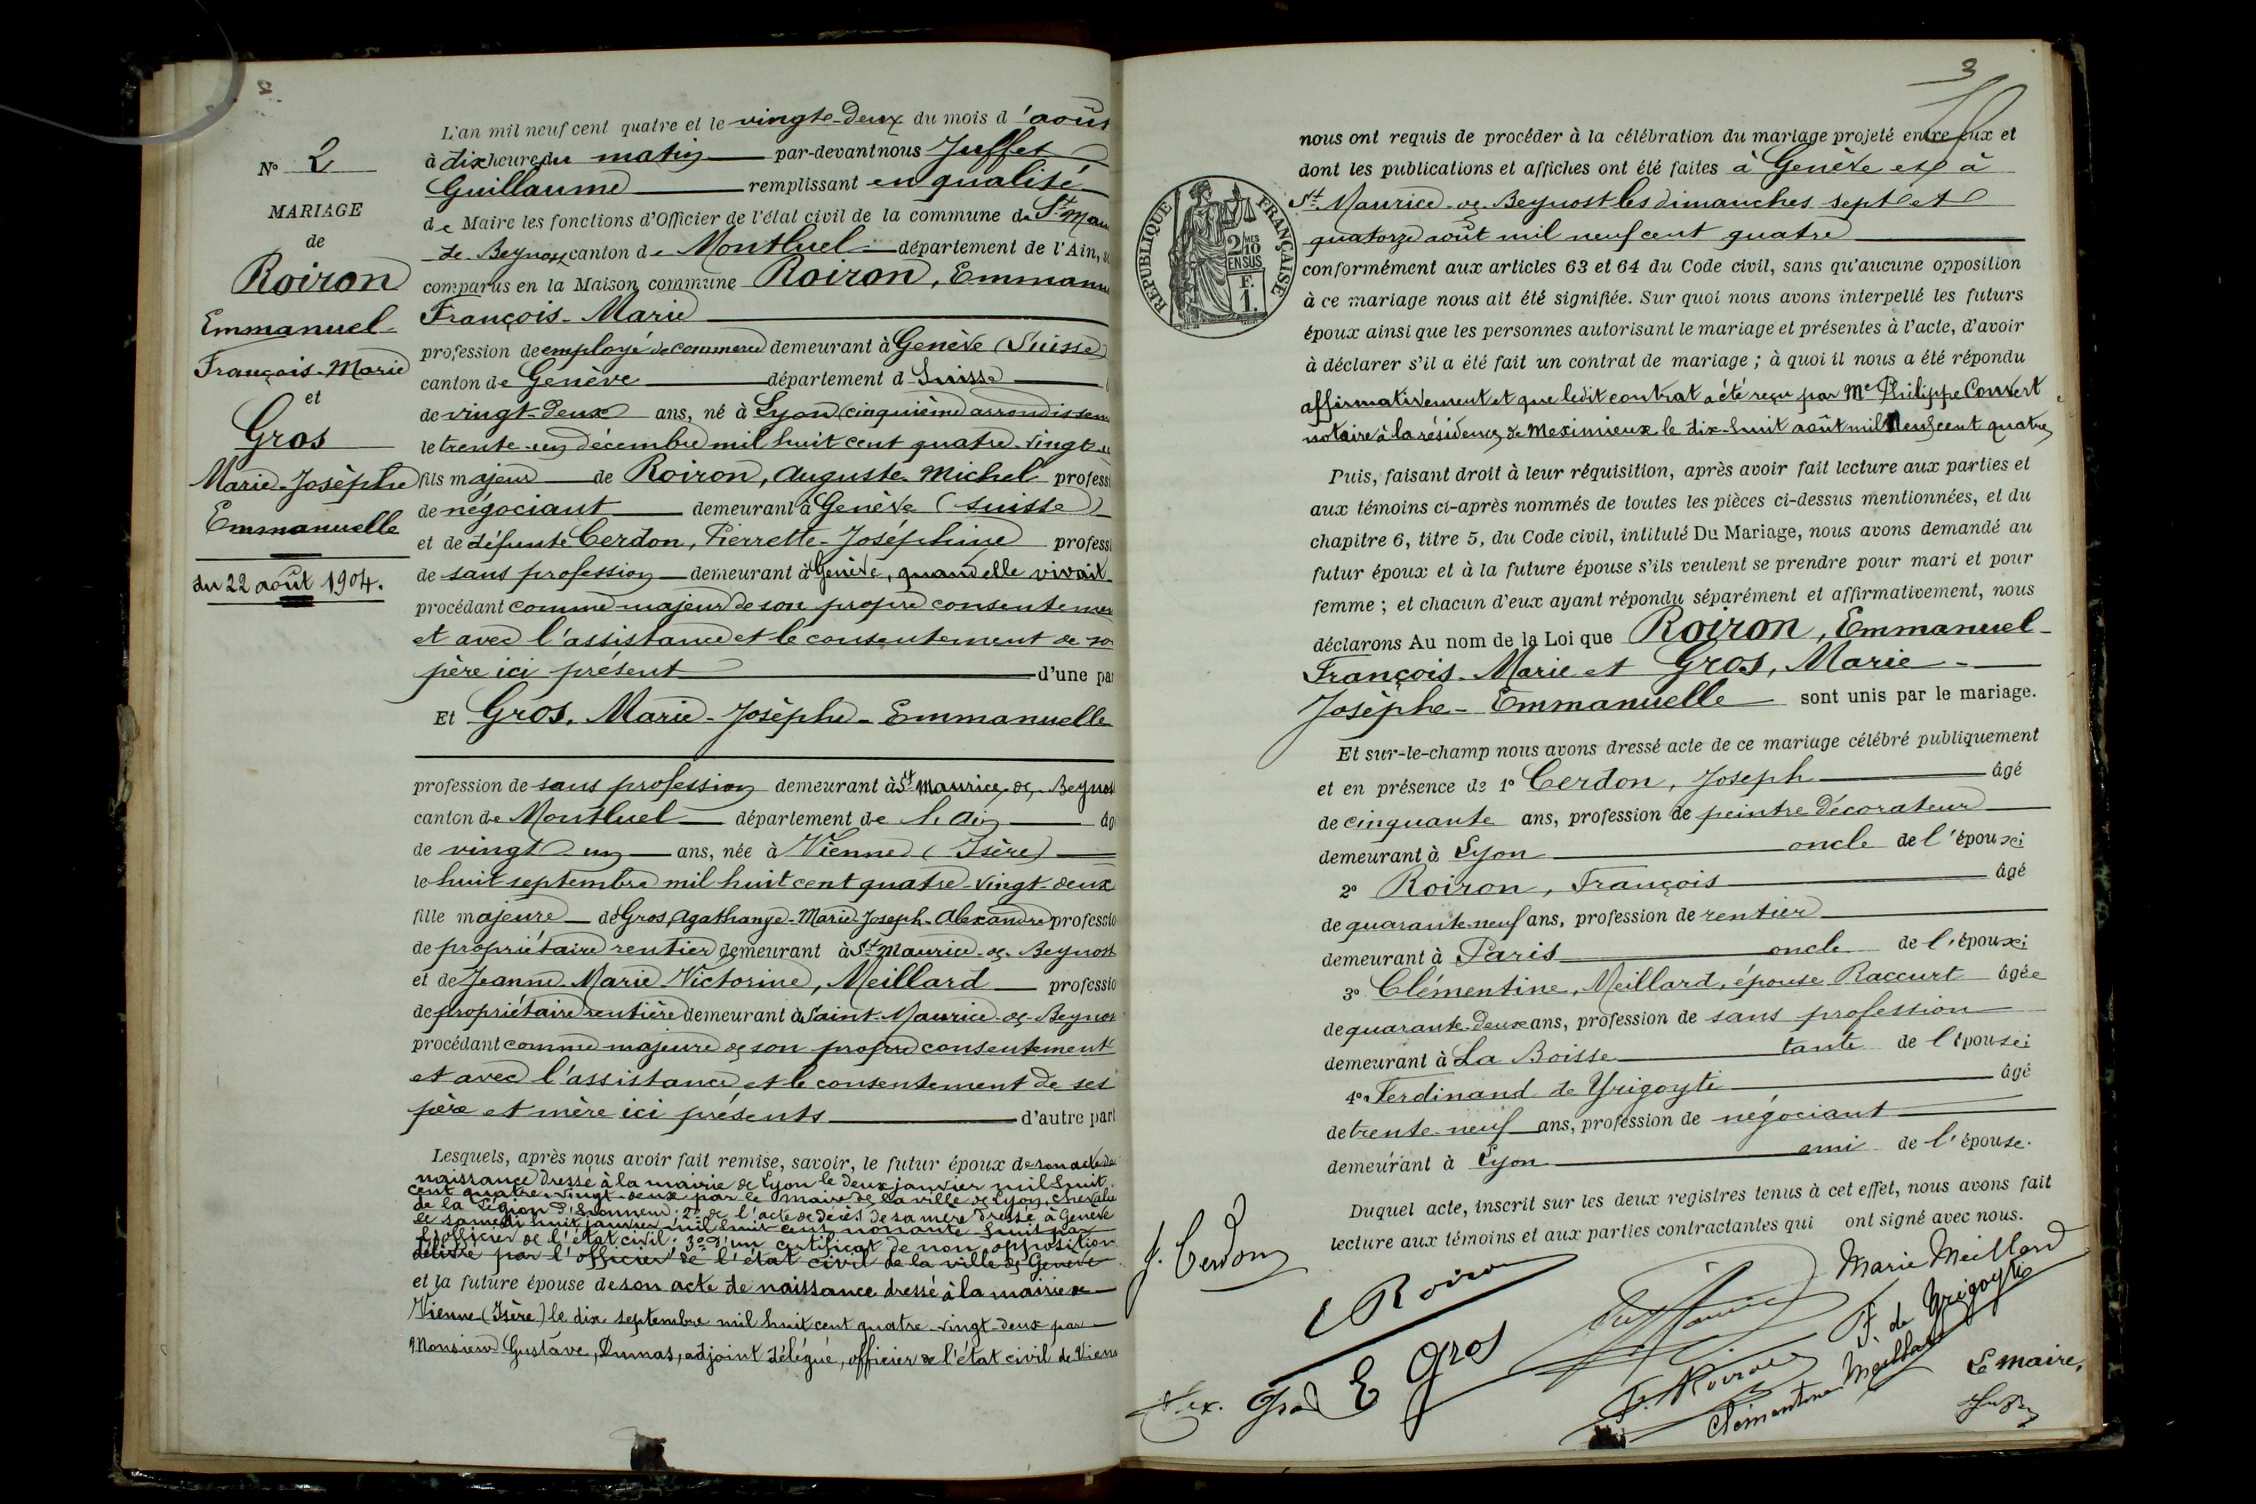 2
N° 2
MARIAGE
de
Roiron
Emmanuel-
François-Marie
et
Gros
Marie-Josèphe
Emmanuelle
du 22 août 1904.
L'an mil neuf cent quatre et le vingt-deux du mois d'août
à dix heure du matin par-devant nous Juffet
Guillaume remplissant en qualité
de Maire les fonctions d'Officier de l'état civil de la commune de St Mau
de Beynost canton de Montluel département de l'Ain,
comparus en la Maison commune Roiron, Emmanu
François-Marie
profession de employé de commerce demeurant à Genève (Suisse)
canton de Genève département d Suisse
de vingt-deux ans, né à Lyon (cinquième arrondissem
le trente-un décembre mil huit cent quatre-vingt-u
fils majeur de Roiron, Auguste-Michel professi
de négociant demeurant à Genève (Suisse)
et de défunte Cerdon, Pierrette-Joséphine professi
de sans profession demeurant à Genève, quand elle vivait
procédant comme majeur de son propre consentemen
et avec l'assistance et le consentement de so
père ici présent d'une par
Et Gros, Marie-Josèphe-Emmanuelle
profession de sans profession demeurant à St Maurice-de-Beynost
canton de Montluel département de l'Ain âg
de vingt-un ans, née à Vienne (Isère)
le huit septembre mil huit cent quatre-vingt-deux
fille majeure de Gros, Agathange-Marie-Joseph-Alexandre professio
de propriétaire rentier demeurant à St Maurice-de-Beynost
et de Jeanne-Marie-Victorine, Meillard professio
de propriétaire rentière demeurant à Saint-Maurice-de-Beynos
procédant comme majeure de son propre consentement
et avec l'assistance et le consentement de ses
père et mère ici présents d'autre part
Lesquels, après nous avoir fait remise, savoir, le futur époux de son acte de
naissance dressé à la mairie de Lyon le deux janvier mil huit
cent quatre-vingt-deux par le maire de la ville de Lyon, chevalier
de la Légion d'honneur; 2° de l'acte de décès de sa mère dressé à Genève
le samedi huit janvier mil huit cent nonante-huit par
l'officier de l'état civil; 3° d'un certificat de non opposition
délivré par l'officier de l'état civil de la ville de Genève
et la future épouse de son acte de naissance dressé à la mairie de
Vienne (Isère) le dix septembre mil huit cent quatre-vingt-deux par
Monsieur Gustave, Dumas, adjoint délégué, officier de l'état civil de Vienn
3
nous ont requis de procéder à la célébration du mariage projeté entre eux et
dont les publications et affiches ont été faites à Genève et à
St-Maurice-de-Beynost les dimanches sept et
quatorze août mil neuf cent quatre
RÉPUBLIQUE FRANÇAISE
2/10MES
EN SUS
F.
1.
conformément aux articles 63 et 64 du Code civil, sans qu'aucune opposition
à ce mariage nous ait été signifiée. Sur quoi nous avons interpellé les futurs
époux ainsi que les personnes autorisant le mariage et présentes à l'acte, d'avoir
à déclarer s'il a été fait un contrat de mariage ; à quoi il nous a été répondu
affirmativement et que ledit contrat a été reçu par Me Philippe Convert
notaire à la résidence de Meximieux le dix-huit août mil neuf cent quatre
Puis, faisant droit à leur réquisition, après avoir fait lecture aux parties et
aux témoins ci-après nommés de toutes les pièces ci-dessus mentionnées, et du
chapitre 6, titre 5, du Code civil, intitulé Du Mariage, nous avons demandé au
futur époux et à la future épouse s'ils veulent se prendre pour mari et pour
femme ; et chacun d'eux ayant répondu séparément et affirmativement, nous
déclarons Au nom de la Loi que Roiron, Emmanuel-
François-Marie et Gros, Marie-
Josèphe-Emmanuelle sont unis par le mariage.
Et sur-le-champ nous avons dressé acte de ce mariage célébré publiquement
et en présence de 1° Cerdon, Joseph âgé
de cinquante ans, profession de peintre décorateur
demeurant à Lyon oncle de l'époux
2° Roiron, François âgé
de quarante-neuf ans, profession de rentier
demeurant à Paris oncle de l'époux
3° Clémentine, Meillard, épouse Raccurt âgée
de quarante-deux ans, profession de sans profession
demeurant à La Boisse tante de l'épouse
4° Ferdinand de Yrigoyti âgé
de trente-neuf ans, profession de négociant
demeurant à Lyon ami de l'épouse.
Duquel acte, inscrit sur les deux registres tenus à cet effet, nous avons fait
lecture aux témoins et aux parties contractantes qui ont signé avec nous.
J. Cerdon
E Roiron
Marie Meillard
F. de Yrigoyti
Alex. Gros
E Gros
F. Roiron
Clémentine Meillard
Le maire,
Juffet